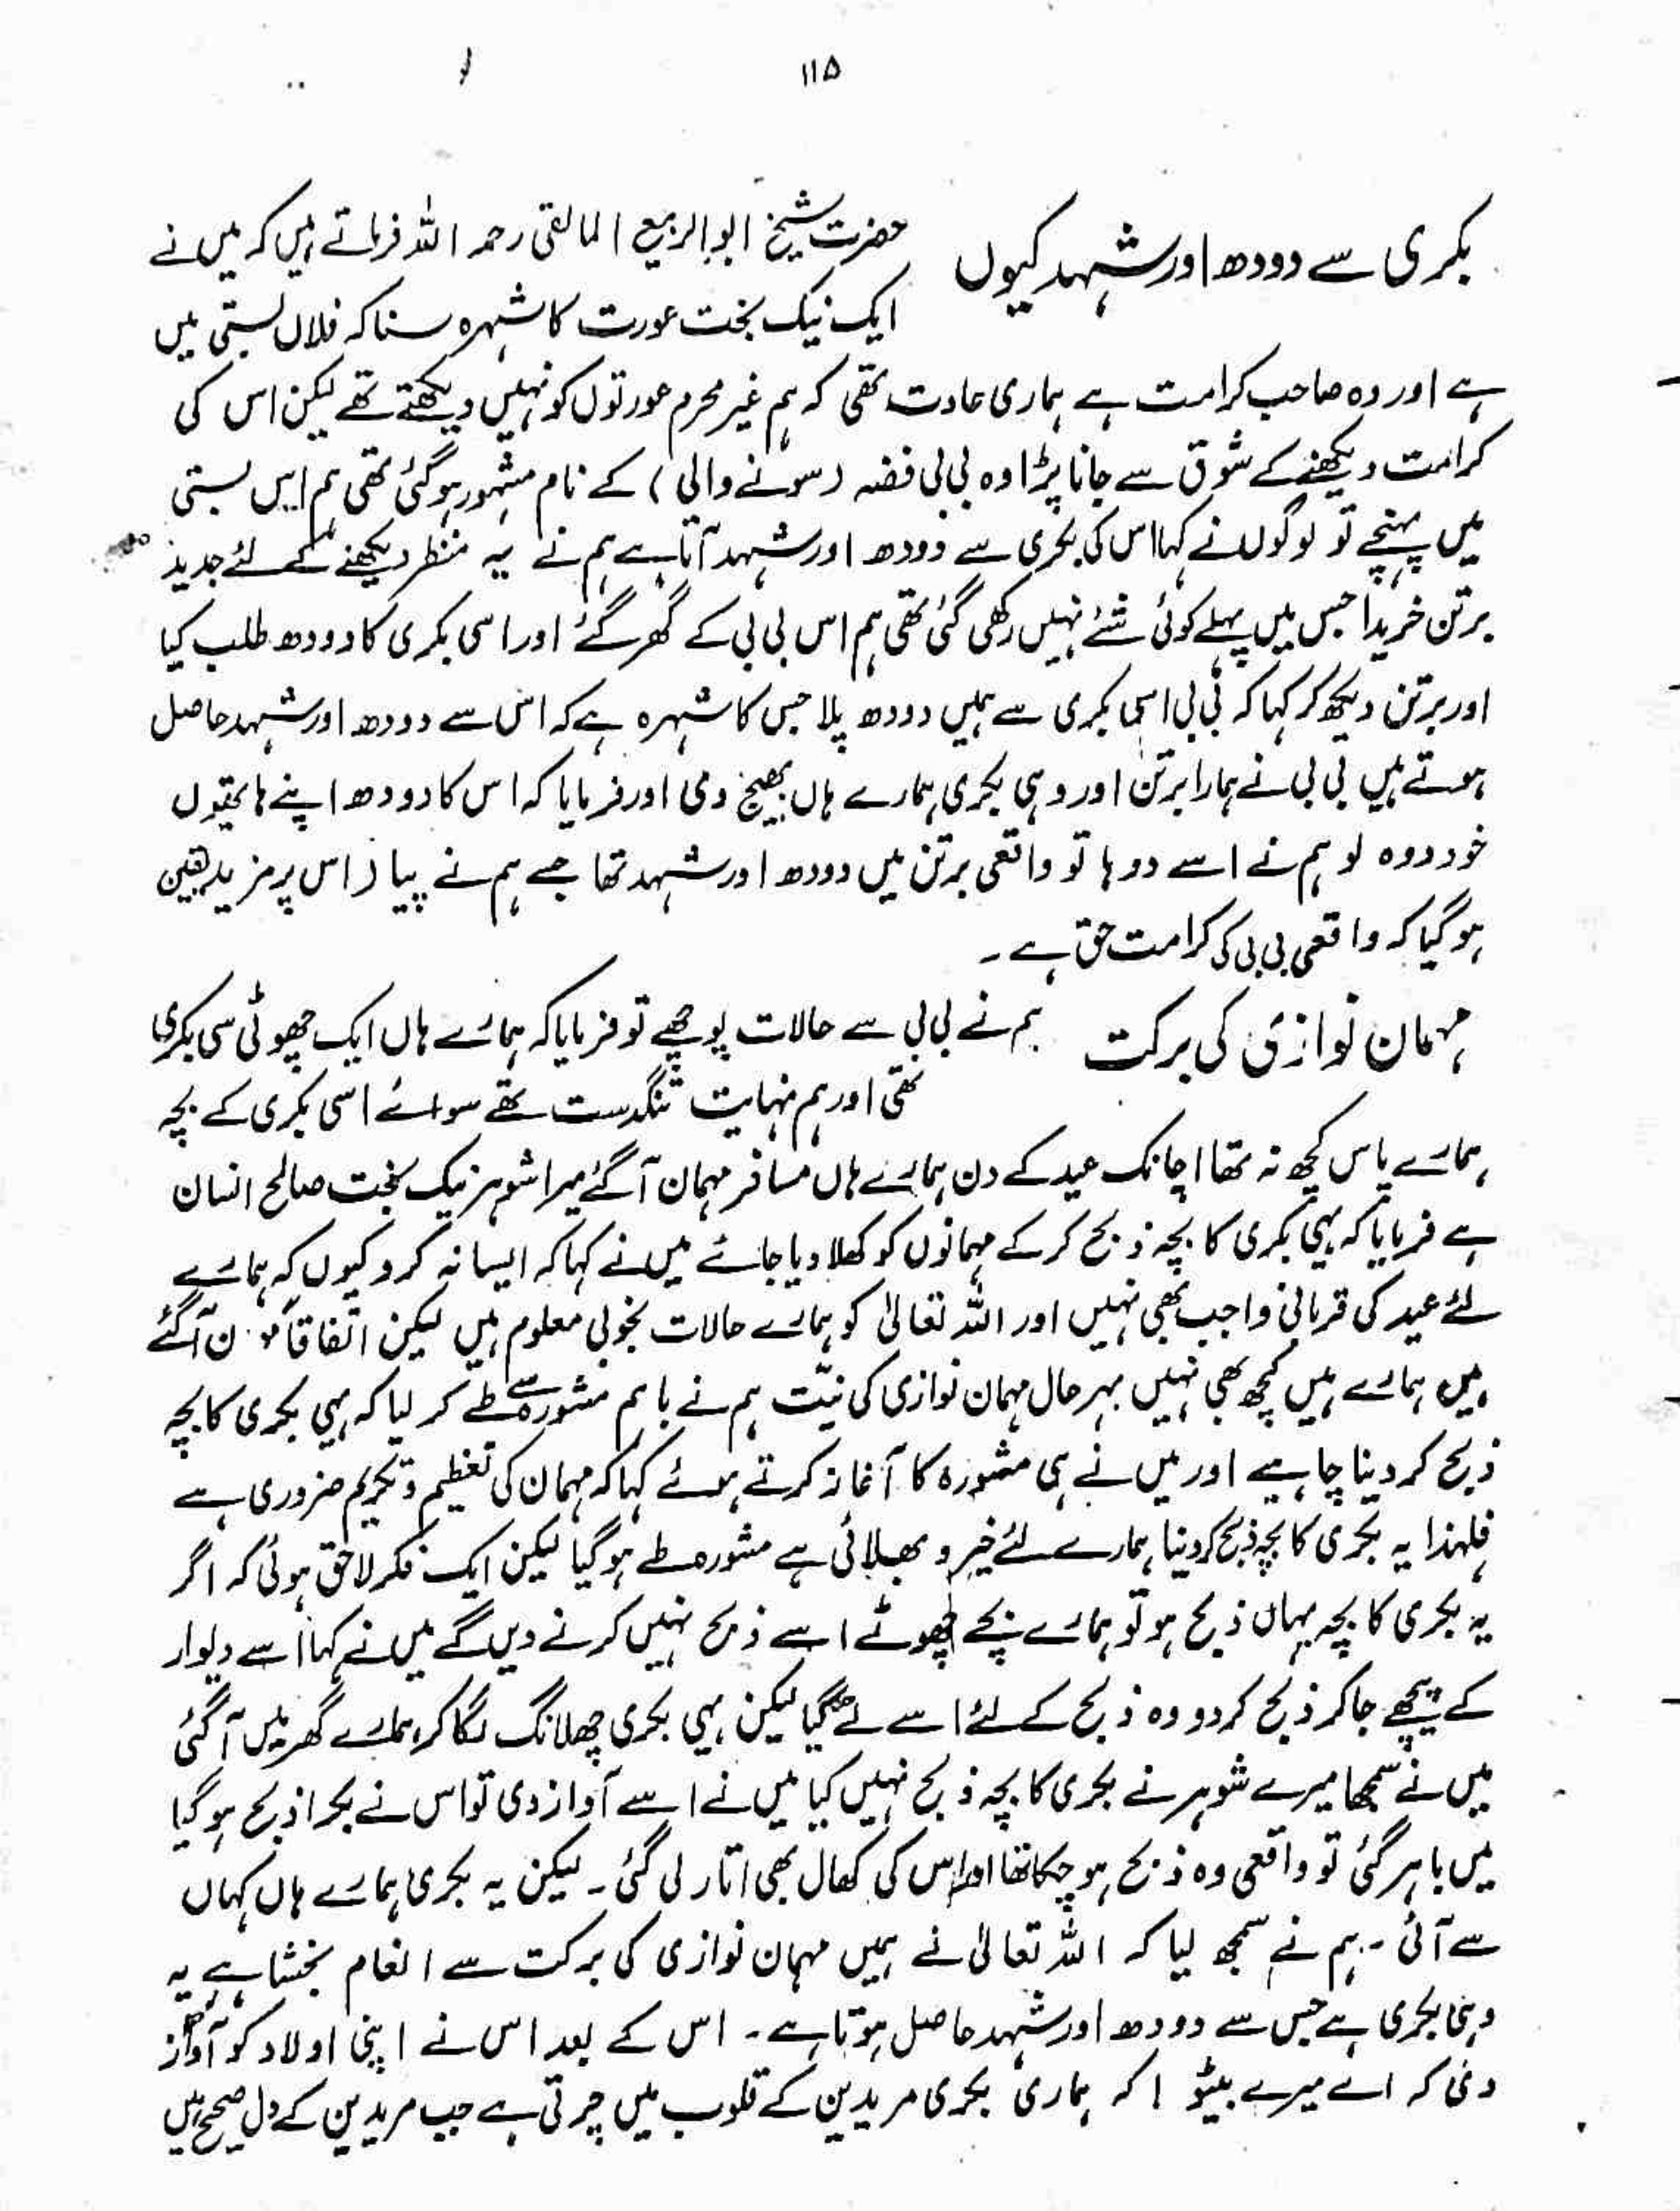 ۱۱۵
بکری سے دودھ اور شہد کیوں
حضرت شیخ ابوالربیع المالقی رحمہ اللہ فرماتے ہیں کہ میں نے
ایک نیک بخت عورت کا شہرہ سنا کہ فلاں بستی میں
ہے اور وہ صاحب کرامت ہے ہماری عادت تھی کہ ہم غیر محرم عورتوں کو نہیں دیکھتے تھے لیکن اس کی
کرامت دیکھنے کے شوق سے جانا پڑا وہ بی بی فضہ (سونے والی) کے نام مشہور ہوگئی تھی ہم اس بستی
میں پہنچے تو لوگوں نے کہا اس کی بکری سے دودھ اور شہد آتا ہے ہم نے یہ منظر دیکھنے کے لئے جدید
برتن خریدا جس میں پہلے کوئی شئے نہیں رکھی گئی تھی ہم اس بی بی کے گھر گئے اور اسی بکری کا دودھ طلب کیا
اور برتن دیکھ کر کہا کہ بی بی اسی بکری سے ہمیں دودھ پلا جس کا شہرہ ہے کہ اس سے دودھ اور شہد حاصل
ہوتے ہیں بی بی نے ہمارا برتن اور وہی بکری ہمارے ہاں بھیج دی اور فرمایا کہ اس کا دودھ اپنے ہاتھوں
خود دوہ لو ہم نے اسے دوہا تو واقعی برتن میں دودھ اور شہد تھا جسے ہم نے پیا (اس پر مزید یقین
ہوگیا کہ واقعی بی بی کی کرامت حق ہے ۔
مہمان نوازی کی برکت
ہم نے بی بی سے حالات پوچھے تو فرمایا کہ ہمارے ہاں ایک چھوٹی سی بکری
تھی اور ہم نہایت تنگدست تھے سوائے اسی بکری کے بچہ
ہمارے پاس کچھ نہ تھا اچانک عید کے دن ہمارے ہاں مسافر مہمان آگئے میرا شوہر نیک بخت صالح انسان
ہے فرمایا کہ یہی بکری کا بچہ ذبح کرکے مہمانوں کو کھلا دیا جائے میں نے کہا کہ ایسا نہ کرو کیوں کہ ہمارے
لئے عید کی قربانی واجب بھی نہیں اور اللہ تعالیٰ کو ہمارے حالات بخوبی معلوم ہیں لیکن اتفاقاً آگئے
ہیں ہمارے ہیں کچھ بھی نہیں بہر حال مہمان نوازی کی نیّت ہم نے باہم مشورہ سے طے کر لیا کہ یہی بکری کا بچہ
ذبح کر دینا چاہیے اور میں نے ہی مشورہ کا آغاز کرتے ہوئے کہا کہ مہمان کی تعظیم و تکریم ضروری ہے
فلہذا یہ بکری کا بچہ ذبح کردینا ہمارے لئے خیر و بھلائی ہے مشورہ طے ہوگیا لیکن ایک فکر لاحق ہوئی کہ اگر
یہ بکری کا بچہ یہاں ذبح ہو تو ہمارے بچے چھوٹے اسے ذبح نہیں کرنے دیں گے میں نے کہا اسے دیوار
کے پیچھے جاکر ذبح کردو وہ ذبح کے لئے اسے لے گیا لیکن یہی بکری چھلانگ لگا کر ہمارے گھر میں آگئی
میں نے سمجھا میرے شوہر نے بکری کا بچہ ذبح نہیں کیا میں نے اسے آواز دی تو اس نے بکرا ذبح ہوگیا
میں باہر گئی تو واقعی وہ ذبح ہو چکا تھا اور اس کی کھال بھی اتار لی گئی ۔ لیکن یہ بکری ہمارے ہاں کہاں
سے آئی ۔ ہم نے سمجھ لیا کہ اللہ تعالیٰ نے ہمیں مہمان نوازی کی برکت سے انعام بخشا ہے یہ
وہی بکری ہے جس سے دودھ اور شہد حاصل ہوتا ہے ۔ اس کے بعد اس نے اپنی اولاد کو آواز
دی کہ اے میرے بیٹو ! کہ ہماری بکری مریدین کے قلوب میں چرتی ہے جب مریدین کے دل صحیح ہیں